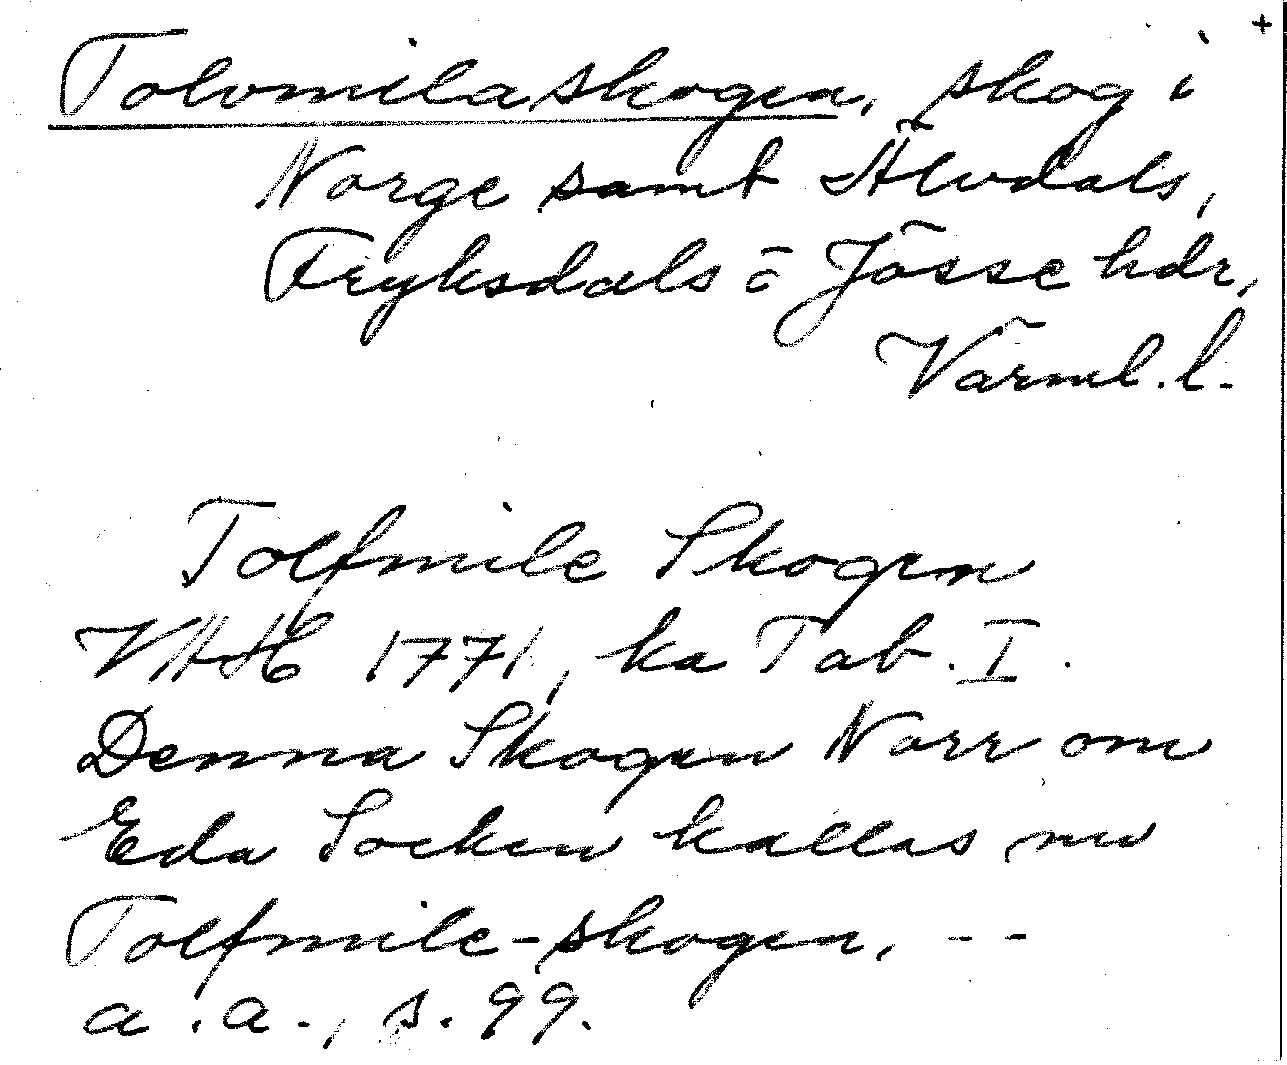 Tolvmilaskogen, skog i +
Norge samt Älvdals,
Fryksdals o Jösse hdr,
Värml. l.
Tolfmile Skogen
VHH 1771, ka Tab. I.
Denna Skogen Norr om
Eda Socken kallas nu
Tolfmile-skogen, - -
a.a., s. 99.